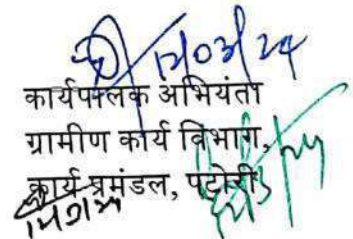 12/03/24
कार्यपालक अभियंता
ग्रामीण कार्य विभाग,
कार्य प्रमंडल, पटोरी